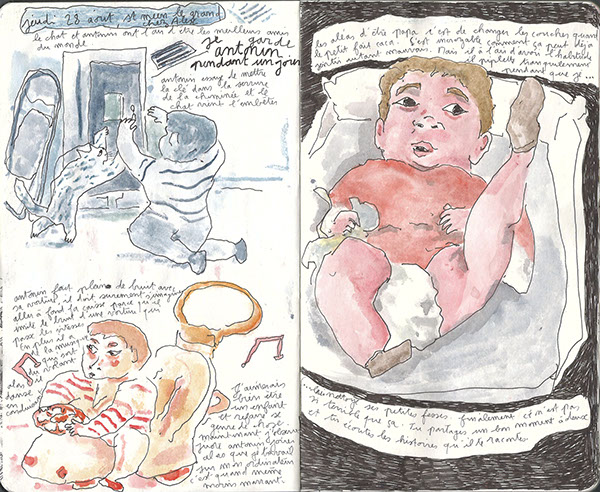 jeudi 28 aout, st meen le grand
chez Alex
le chat et antonin ont l'air d'être les meilleurs amis
du monde
Je garde
antonin
pendant un jour
antonin essaye de mettre
la clé dans la serrure
de la cheminée et le
chat vient l'embêter
antonin fait plein de bruit avec
sa voiture, il doit surement s'imaginer
aller à fond la caisse parce qu'il
imite le bruit d'une voiture qui
passe les vitesses
En plus il a
mis la musique
qui sort
du volant
alors il
danse
en
conduisant
J'aimerais
bien être
un enfant
et refaire ce
genre de choses
maintenant j'essaierai
jouer antonin
et ce que je travail
sur mon ordinateur
c'est quand meme
moins marrant.
les aléas d'être papa c'est de changer les couches quand
le petit fait caca. C'est incroyable comment ça peut déjà
sentir autant mauvais. Mais il a l'air d'avoir l'habitude
il papillote tranquillement
pendant que je...
...lui nettoye ses petites fesses. finalement ce n'est pas
si terrible que ça. Tu partages un bon moment à deux
et tu écoutes les histoires qu'il te raconte.